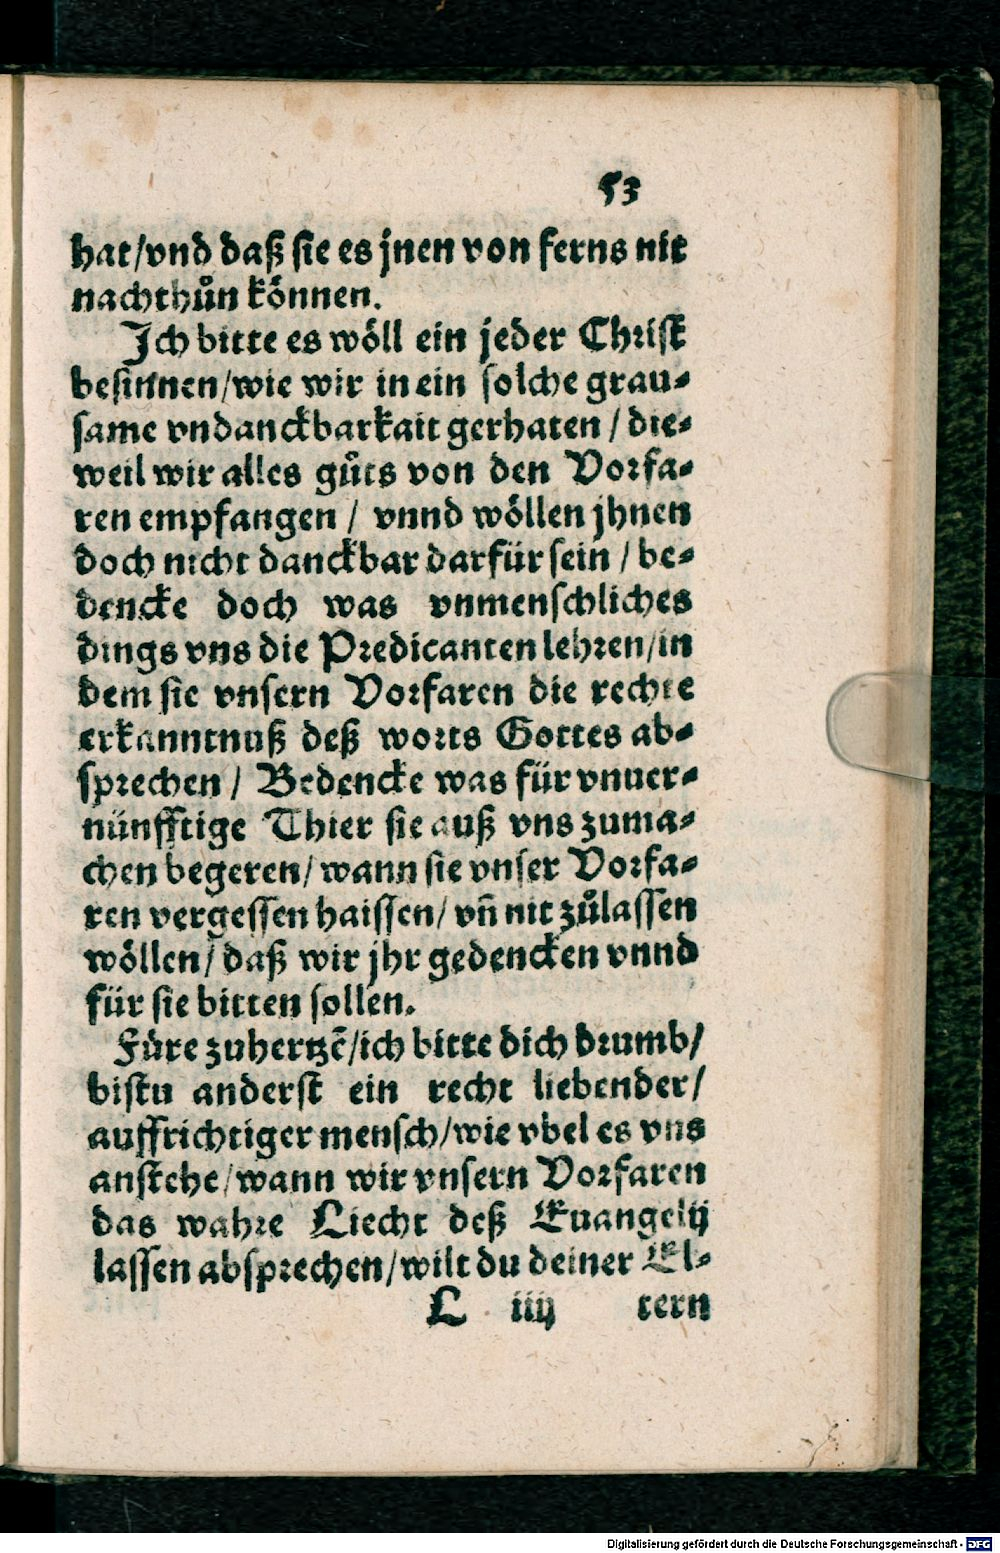 53
hat/vnd daß sie es jnen von ferns nit
nachthůn können.
Ich bitte es wöll ein jeder Christ
besinnen/wie wir in ein solche grau-
same vndanckbarkait gerhaten / die-
weil wir alles gůts von den Vorfa-
ren empfangen / vnnd wöllen jhnen
doch nicht danckbar darfür sein / be-
dencke doch was vnmenschliches
dings vns die Predicanten lehren/in
dem sie vnsern Vorfaren die rechte
erkanntnuß deß worts Gottes ab-
sprechen / Bedencke was für vnuer-
nünfftige Thier sie auß vns zuma-
chen begeren/wann sie vnser Vorfa-
ren vergessen haissen/ vn̄ nit zůlassen
wöllen/ daß wir jhr gedencken vnnd
für sie bitten sollen.
Füre zuhertzē/ich bitte dich drumb/
bistu anderst ein recht liebender/
auffrichtiger mensch/wie vbel es vns
anstehe/wann wir vnsern Vorfaren
das wahre Liecht deß Euangelij
lassen absprechen/wilt du deiner El-
L iiij tern
Digitalisierung gefördert durch die Deutsche Forschungsgemeinschaft - DFG